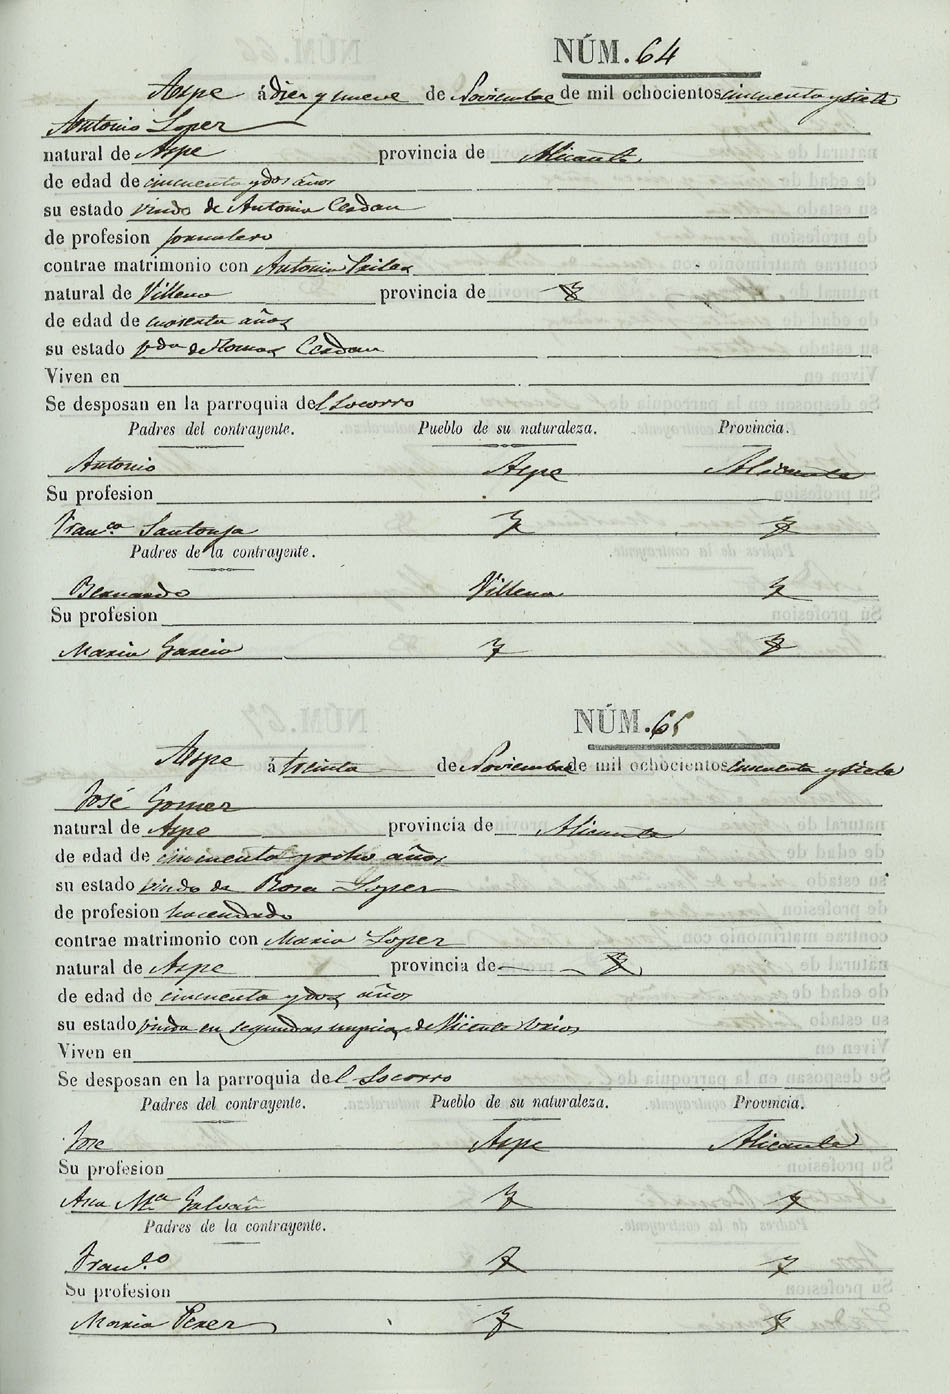 NÚM. 64
Aspe á diez y nueve de Noviembre de mil ochocientos cincuenta y siete
Antonio Lopez
natural de Aspe provincia de Alicante
de edad de cincuenta y dos años
su estado viudo de Antonia Cerdan
de profesion jornalero
contrae matrimonio con Antonia
natural de Villena provincia de
de edad de cuarenta años
su estado vda de Tomas Cerdan
Viven en
Se desposan en la parroquia del Socorro
Padres del contrayente. Pueblo de su naturaleza. Provincia.
Antonio Aspe Alicante
Su profesion
Franca Santonja
Padres de la contrayente.
Bernardo Villena
Su profesion
Maria Garcia
NÚM. 65
Aspe á treinta de Noviembre de mil ochocientos cincuenta y siete
José Gomez
natural de Aspe provincia de Alicante
de edad de cincuenta y ocho años
su estado viudo de Rosa Lopez
de profesion hacendado
contrae matrimonio con Maria Lopez
natural de Aspe provincia de
de edad de cincuenta y dos años
su estado viuda en segundas nupcias de Vicente
Viven en
Se desposan en la parroquia del Socorro
Padres del contrayente. Pueblo de su naturaleza. Provincia.
Jose Aspe Alicante
Su profesion
Ana Ma Galvañ
Padres de la contrayente.
Franco
Su profesion
Maria Perez